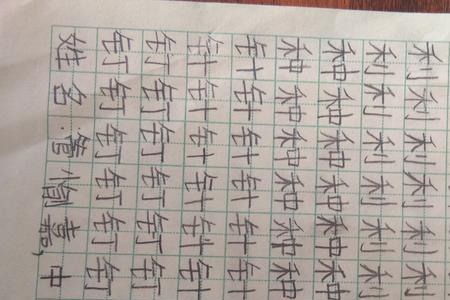 利利利利利利
利利利利利利
种种种种种种
种种种种种种
针针针针针针
针针针针针针
钉钉钉钉钉钉
钉钉钉钉钉钉
姓名: